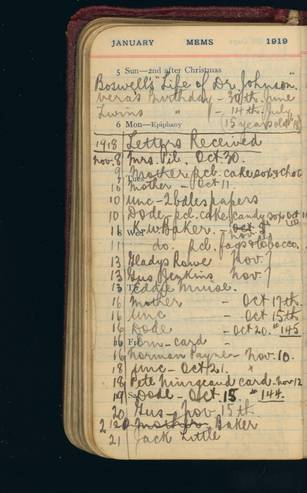 JANUARY MEMS 1919
5 Sun—2nd after Christmas
Boswell's "Life of Dr. Johnson.
Vera's Birthday - 30th June
Twins " - 14th July
15 years old
6 Mon—Epiphany
1918 Letters Received
Nov. 8 Mrs. Pib. Oct 30.
9 Mother pcl. cake sox & choc
16 Mother - Oct 11.
10 Unc - 2 bdles papers
10 Dode pcl. cake candy sox Oct
11 K. W. Baker. - Oct
11 do. pcl. fags & tobacco.
13 Gladys Rowe Nov. 7
13 Gus Jenkins Nov. 7
13 Eddie
16 Mother - Oct 17th.
16 Unc - Oct 15th
16 Dode - Oct 20. #145
16 Ern - card -
16 Norman Payne - Nov. 10.
18 Unc - Oct 21.
18 Pete card Nov 12
19 Dode - Oct. 15. #144.
20 Gus - Nov 15th
Baker
21 Jack Little